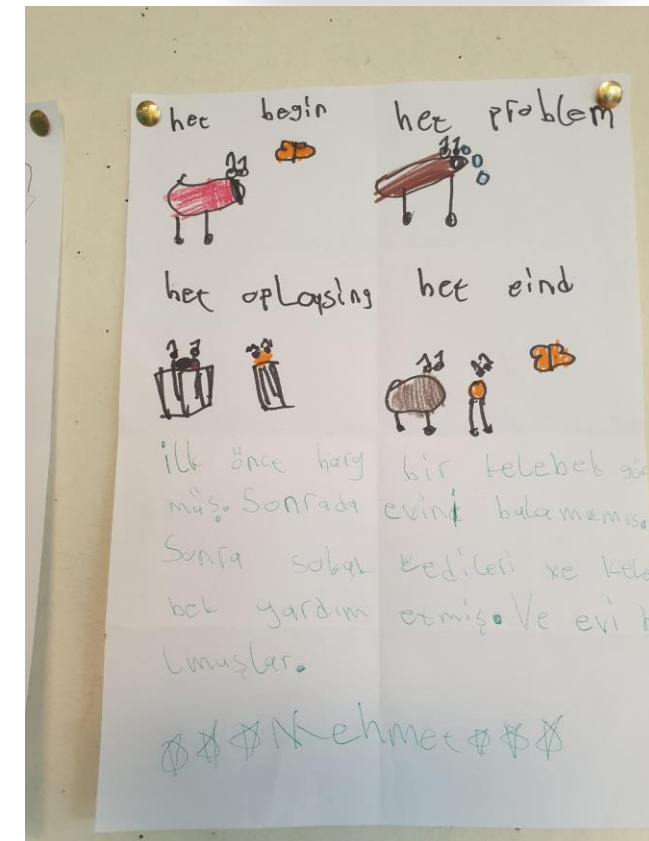 het begin
het problem
het oploysing
het eind
ilk önce harg bir kelebek gö
müş. Sonrada evini bulamamıs.
Sonra sokak kedileri ve kele
bek yardım etmiş. Ve evi b
lmuşlar.
Mehmet